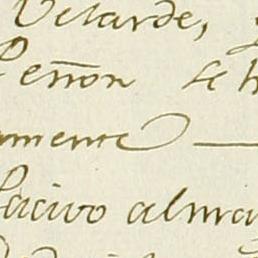 Velarde,
Peñon se h
amente
Pacivo alma